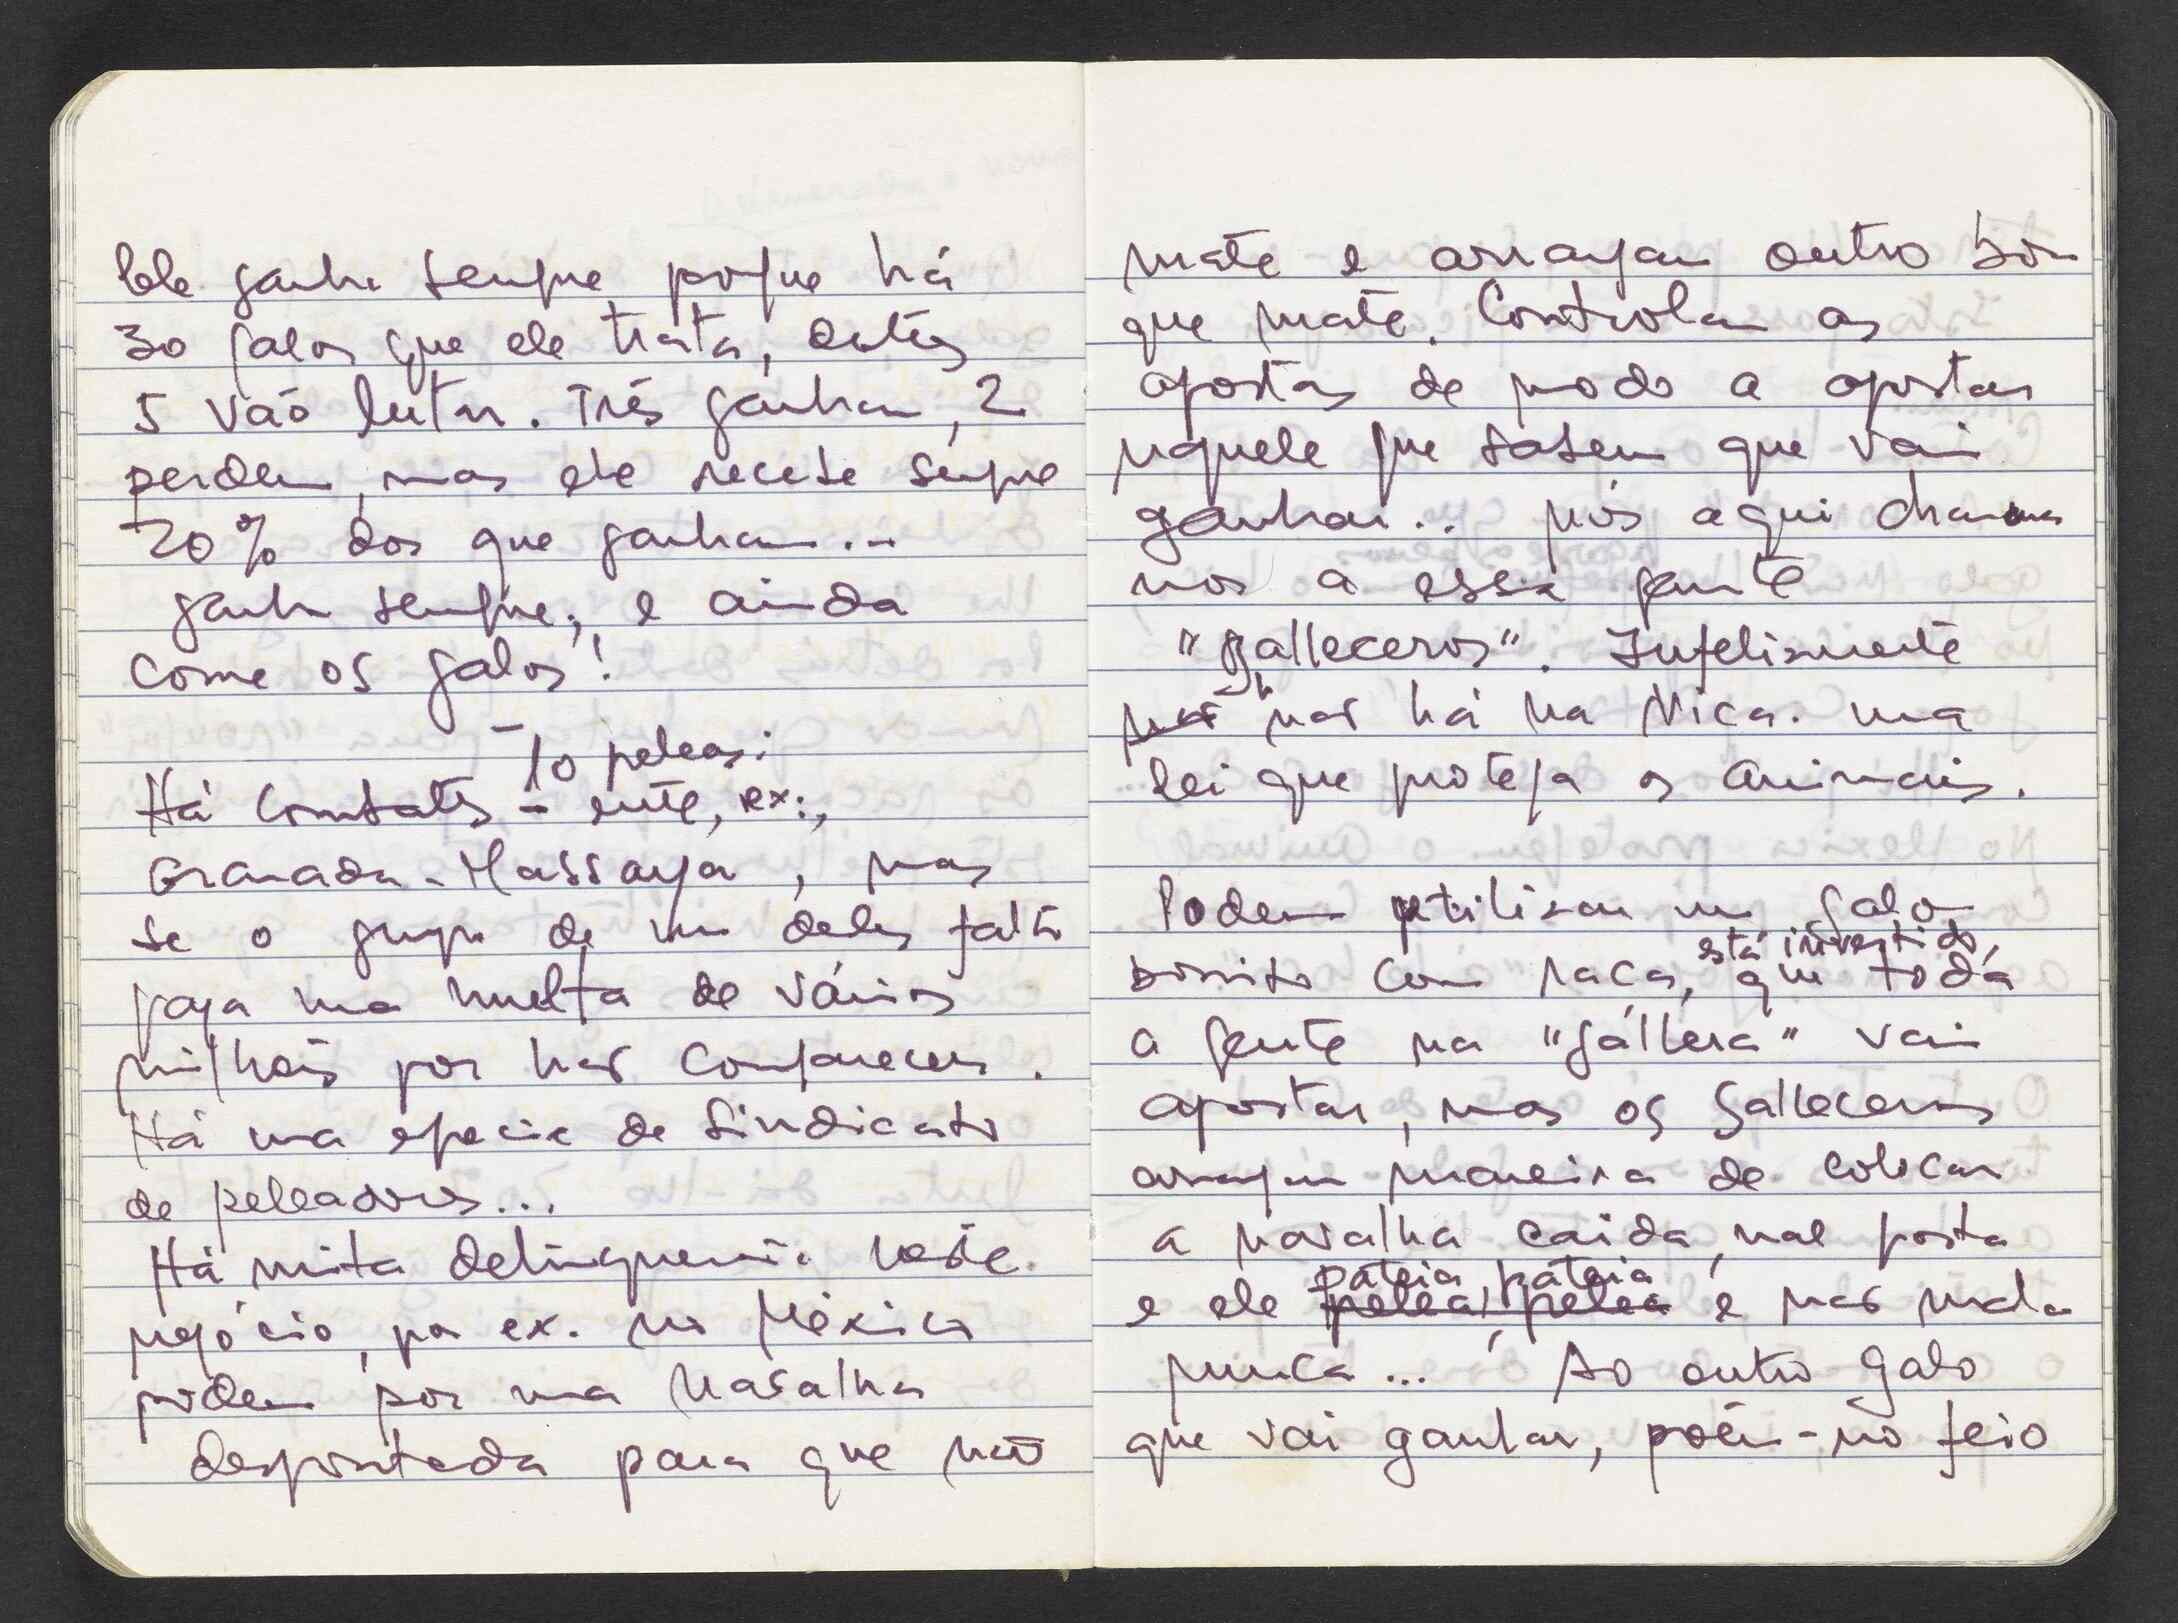 Ele ganha sempre porque há
30 galos que ele trata, destes
5 vão lutar. Três ganham, 2
perdem, mas ele recebe sempre
20% dos que ganham...
ganha sempre, e ainda
come os galos!
—
10 peleas:
Há combates - entre, ex:,
Granada-Massaya, mas
se o grupo de um deles falta
paga uma multa de vários
milhões por não comparecer.
Há uma especie de sindicato
de peleadores...
Há muita delinquencia neste
negócio, por ex. no México
podem pôr uma navalha
despontada para que não
mate e arranjam outro bom
que mate. Controlam as
apostas de modo a apostar
naquele que sabem que vai
ganhar.. nós aqui chamamos
nos a essa gente
"galleceros". Infelizmente
não não há na Nica. uma
lei que proteja os animais.
Podem utilizar um galo
está investido,
bonito com raça, que toda
a gente na "gállera" vai
apostar, mas os galleceros
arranjam maneira de colocar
a navalha caida, mal posta
pateia, pateia
e ele pelea, pelea e não mata
nunca... Ao outro galo
que vai ganhar, põem-no feio